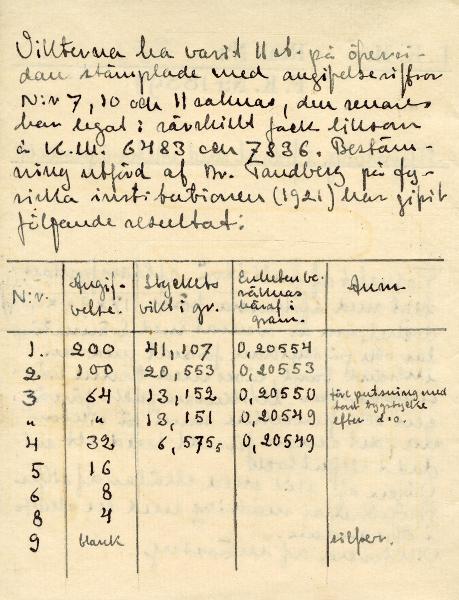 Vikterna ha varit 11 st. på öfversi-
dan stämplade med angifvelsesiffror
N:r 7, 10 och 11 saknas, den senare
har legat i särskildt fack liksom
å K.M. 6483 och 7836. Bestäm-
ning utförd af Dr. Tandberg på fy-
siska institutionen (1921) har gifvit
följande resultat:
N:r. Angif-velse. Styckets vikt i gr. Enheten be-räknas häraf i gram. Anm.
1. 200 41,107 0,20554
2 100 20,553 0,20553
3 64 13,152 0,20550 före putsning med
" " 13,151 0,20549 efter d:o.
4 32 6,5755 0,20549
5 16
6 8
8 4
9 blank silfver.